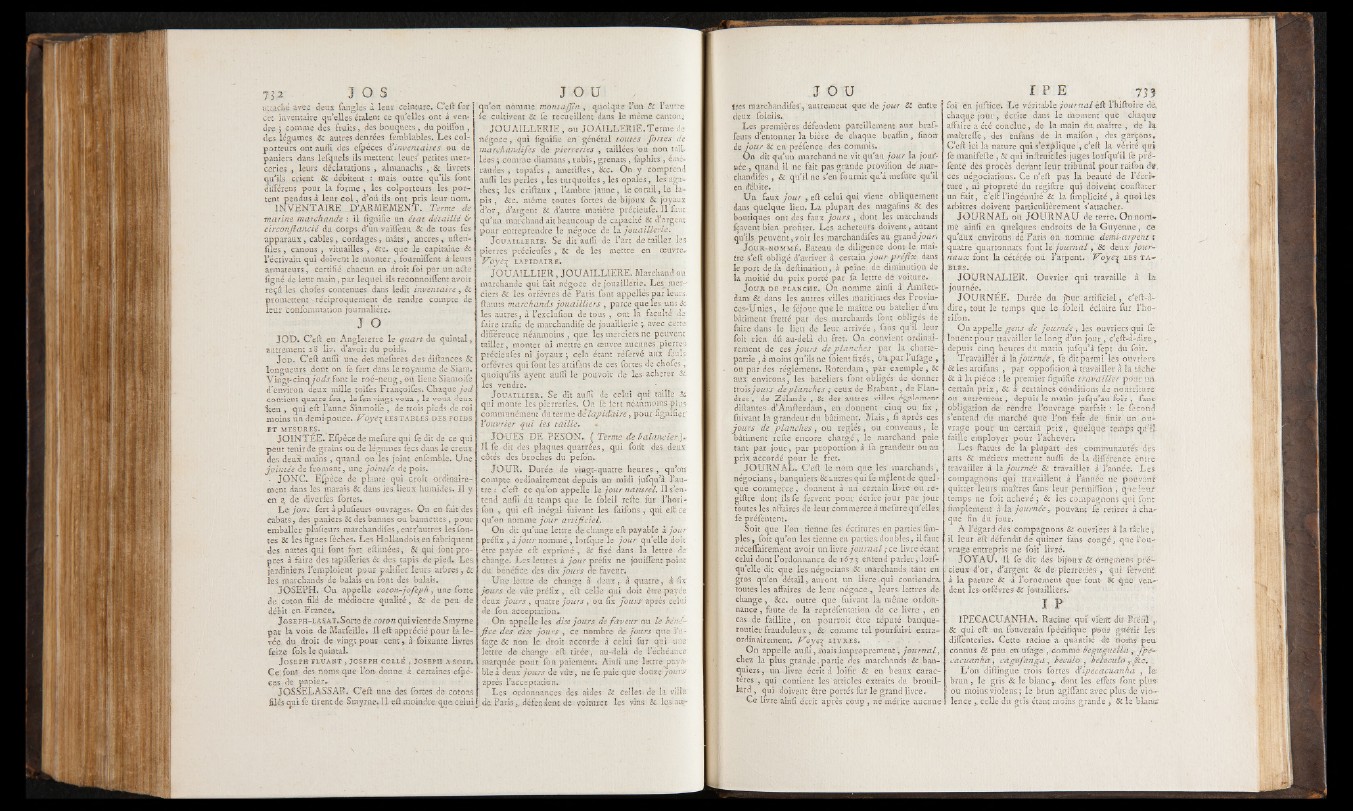 732 JOS
attaché avec deux ſangles à leur ceinture. C'eſt ſur
cet inventaire qu'elles étalent ce qu'elles ont à ven-
dre ; comme des fruits, des bouquets, du poiſſon,
des légumes & autres denrées ſemblables. Les col-
porteurs ont auſſi des eſpèces d'inventaires ou de
paniers dans leſquels ils mettent leurs petites mer-
ceries, leurs déclarations, almanachs, & livrets
qu'ils crient & débitent : mais outre qu'ils ſont
différens pour la forme, les colporteurs les por-
tent pendus à leur col, d'où ils ont pris leur nom.
INVENTAIRE D'ARMEMENT. Terme de
marine marchande : il ſignifie un état détaillé &
circonſtancié du corps d'un vaiſſeau & de tous ſes
apparaux, cables, cordages, mâts, ancres, uſten-
ſiles, canons, victuailles, &c. que le capitaine &
l'écrivain qui doivent le monter, fourniſſent à leurs
armateurs, certifié chacun en droit ſoi par un acte
ſigné de leur main, par lequel ils reconnoiſſent avoir
reçû les choſes contenues dans ledit inventaire, &
promettent réciproquement de rendre compte de
leur conſommation journalière.
JO
JOD. C'eſt en Angleterre le quart du quintal,
autrement 28 liv. d'avoir du poids.
JOD. C'eſt auſſi une des meſures des diſtances &
longueurs dont on ſe ſert dans le royaume de Siam.
Vingt-cinq jods font le roé-neug, ou lieue Siamoiſe
d'environ deux mille toiſes Françoiſes. Chaque jod
contient quatre ſen, le ſen vingt voua, le voua deux
ken, qui eſt l'aune Siamoiſe, de trois pieds de roi
moins un demi-pouce. Voyez LES TABLES DES POIDS
ET MESURES.
JOINTÉE. Eſpèce de meſure qui ſe dit de ce qui
peut tenir de grains ou de légumes ſecs dans le creux
des deux mains, quand on les joint enſemble. Une
jointée de froment, une jointée de pois.
JONC. Eſpèce de plante qui croît ordinaire-
ment dans les marais & dans les lieux humides. Il y
en a de diverſes ſortes.
Le jon. ſert à pluſieurs ouvrages. On en fait des
cabats, des paniers & des bannes ou bannettes, pour
emballer pluſieurs marchandiſes, entr'autres les ſon-
tes & les figues ſèches. Les Hollandois en fabriquent
des nattes qui ſont fort eſtimées, & qui ſont pro-
pres à faire des tapiſſeries & des tapis de pied. Les
jardiniers l'emploient pour paliſſer leurs arbres, &
les marchands de balais en font des balais.
JOSEPH. On appelle coton-joſeph, une ſorte
de coton filé de médiocre qualité, & de peu de
débit en France.
JOSEPH-LASAT. Sorte de coton qui vient de Smyrne
par la voie de Marſeille. Il eſt apprécié pour la le-
vée du droit de vingt pour cent, à ſoixante livres
ſeize ſols le quintal.
JOSEPH FLUANT, JOSEPH COLLÉ, JOSEPH A SOIE.
Ce ſont des noms que l'on donne à certaines eſpè-
ces de papier.
JOSSELASSAR. C'eſt une des ſortes de cotons
filés qui ſe tirent de Smyrne. Il eſt moindre que celui
JOU
qu'on nomme montaſſin, quoique l'un & l'autre
ſe cultivent & ſe recueillent dans le même canton.
JOUAILLERIE, ou JOAILLERIE. Terme de
négoce, qui ſignifie en général toutes ſortes de
marchandiſes de pierreries, taillées ou non tail-
lées ; comme diamans, rubis, grenats, ſaphirs, éme-
raudes, topaſes, ametiſtes, &c. On y comprend
auſſi les perles, les turquoiſes, les opales, les aga-
thes ; les criſtaux, l'ambre jaune, le corail, le la-
pis, &c. même toutes ſortes de bijoux & joyaux
d'or, d'argent & d'autre matière précieuſe. Il faut
qu'un marchand ait beaucoup de capacité & d'argent
pour entreprendre le négoce de la jouaillerie.
JOUAILLERIE. Se dit auſſi de l'art de tailler les
pierres précieuſes, & de les mettre en œuvre.
Voyez LAPIDAIRE.
JOUAILLIER, JOUAILLIERE. Marchand ou
marchande qui fait négoce de jouaillerie. Les mer-
ciers & les orfèvres de Paris ſont appellés par leurs
ſtatuts marchands jouailliers, parce que les uns &
les autres, à l'excluſion de tous, ont la faculté de
faire trafic de marchandiſe de jouaillerie ; avec cette
différence néanmoins, que les merciers ne peuvent
tailler, monter ni mettre en œuvre aucunes pierres
précieuſes ni joyaux ; cela étant réſervé aux ſeuls
orfèvres qui ſont les artiſans de ces ſortes de choſes,
quoiqu'ils ayent auſſi le pouvoir de les acheter &
les vendre.
JOUAILLIER. Se dit auſſi de celui qui taille &
qui monte les pierreries. On ſe ſert néanmoins plus
communément du terme de lapidaire, pour ſignifier
l'ouvrier qui les taille.
JOUES DE PESON. ( Terme de balancier ).
Il ſe dit des plaques quarrées, qui ſont des deux
côtés des broches du peſon.
JOUR. Durée de vingt-quatre heures, qu'on
compte ordinairement depuis un midi juſqu'à l'au-
tre : c'eſt ce qu'on appelle le jour naturel. Il s'en-
tend auſſi du temps que le ſoleil reſte ſur l'hori-
ſon, qui eſt inégal ſuivant les ſaiſons, qui eſt ce
qu'on nomme jour artificiel.
On dit qu'une lettre de change eſt payable à jour
préfix, à jour nommé, lorſque le jour qu'elle doit
être payée eſt exprimé, & fixé dans la lettre de
change. Les lettres à jour préfix ne jouiſſent point
du bénéfice des dix jours de faveur.
Une lettre de change à deux, à quatre, à ſix
jours de vûe préfix, eſt celle qui doit être payée
deux jours, quatre jours, ou ſix jours après celui
de ſon acceptation.
On appelle les dix jours de faveur ou le béné-
fice des dix jours, ce nombre de jours que l'u-
ſage & non le droit accorde à celui ſur qui une
lettre de change eſt tirée, au-delà de l'échéance
marquée pour ſon paiement. Ainſi une lettre paya-
ble à deux jours de vûe, ne ſe paie que douze jours
après l'acceptation.
Les ordonnances des aides & celles de la ville
de Paris, défendent de voiturer les vins & les au-
JOU
tres marchandiſes, autrement que de jour & entre
deux ſoleils.
Les premières défendent pareillement aux braſ-
ſeurs d'entonner la bière de chaque braſſin, ſinon
de jour & en préſence des commis.
On dit qu'un marchand ne vit qu'au jour la jour-
née, quand il ne fait pas grande proviſion de mar-
chandiſes, & qu'il ne s'en fournit qu'à meſure qu'il
en débite.
Un faux jour, eſt celui qui vient obliquement
dans quelque lieu. La plupart des magaſins & des
boutiques ont des faux jours, dont les marchands
ſçavent bien profiter. Les acheteurs doivent, autant
qu'ils peuvent, voir les marchandiſes au grand jour.
JOUR-NOMMÉ. Bateau de diligence dont le maî-
tre s'eſt obligé d'arriver à certain jour préfix dans
le port de ſa deſtination, à peine de diminution de
la moitié du prix porté par ſa lettre de voiture.
JOUR DE PLANCHE. On nomme ainſi à Amſter-
dam & dans les autres villes maritimes des Provin-
ces-Unies, le ſéjour que le maître ou batelier d'un
bâtiment fretté par des marchands ſont obligés de
faire dans le lieu de leur arrivée, ſans qu'il leur
ſoit rien dû au-delà du fret. On convient ordinai-
rement de ces jours de planches par la charte-
partie, à moins qu'ils ne ſoient fixés, ou par l'uſage,
ou par des réglemens. Roterdam, par exemple, &
aux environs, les bateliers ſont obligés de donner
trois jours de planches ; ceux de Brabant, de Flan-
dres, de Zélande, & des autres villes également
diſtantes d'Amſterdam, en donnent cinq ou ſix,
ſuivant la grandeur du bâtiment. Mais, ſi après ces
jours de planches, ou reglés, ou convenus, le
bâtiment reſte encore chargé, le marchand paie
tant par jour, par proportion à ſa grandeur ou au
prix accordé pour le fret.
JOURNAL. C'eſt le nom que les marchands,
négocians, banquiers & autres qui ſe mêlent de quel-
que commerce, donnent à un certain livre ou re-
giſtre dont ils ſe ſervent pour écrire jour par jour
toutes les affaires de leur commerce à meſure qu'elles
ſe préſentent.
Soit que l'on tienne ſes écritures en parties ſim-
ples, ſoit qu'on les tienne en parties doubles, il faut
néceſſairement avoir un livre journal ; ce livre étant
celui dont l'ordonnance de 1673 entend parler, lorſ-
qu'elle dit que les négocians & marchands tant en
gros qu'en détail, auront un livre qui contiendra
toutes les affaires de leur négoce, leurs lettres de
change, &c. outre que ſuivant la même ordon-
nance, faute de la repréſentation de ce livre, en
cas de faillite, on pourroit être réputé banque-
routier frauduleux, & comme tel pourſuivi extra-
ordinairement. Voyez LIVRES.
On appelle auſſi, mais improprement, journal,
chez la plus grande partie des marchands & ban-
quiers, un livre écrit d'ſuite & en beaux carac-
tères, qui contient les articles extraits du brouil-
lard, qui doivent être portés ſur le grand livre.
Ce livre ainſi écrit après coup, ne mérite aucune
IPE 733
foi en juſtice. Le véritable journal eſt l'hiſtoire de
chaque jour, écrite dans le moment que chaque
affaire a été conclue, de la main du maître, de la
maîtreſſe, des enfans de la maiſon, des garçons.
C'eſt ici la nature qui s'explique, c'eſt la vérité qui
ſe manifeſte, & qui inſtruit les juges lorſqu'il ſe pré-
ſente des procès devant leur tribunal pour raiſon de
ces négociations. Ce n'eſt pas la beauté de l'écri-
ture, ni propreté du regiſtre qui doivent conſtater
un fait, c'eſt l'ingénuité & la ſimplicité, à quoi les
arbitres doivent particulièrement s'attacher.
JOURNAL ou JOURNAU de terre. On nom-
me ainſi en quelques endroits de la Guyenne, ce
qu'aux environs de Paris on nomme demi-arpent :
quatre quartonnats font le journal, & deux jour-
naux font la cétérée ou l'arpent. Voyez LES TA-
BLES.
JOURNALIER. Ouvrier qui travaille à la
journée.
JOURNÉE. Durée du jour artificiel, c'eſt-à-
dire, tout le temps que le ſoleil éclaire ſur l'ho-
riſon.
On appelle gens de journée, les ouvriers qui ſe
louent pour travailler le long d'un jour, c'eſt-à-dire,
depuis cinq heures du matin juſqu'à ſept du ſoir.
Travailler à la journée, ſe dit parmi les ouvriers
& les artiſans, par oppoſition à travailler à la tâche
& à la pièce : le premier ſignifie travailler pour un
certain prix, & à certaines conditions de nourriture
ou autrement, depuis le matin juſqu'au ſoir, ſans
obligation de rendre l'ouvrage parfait : le ſecond
s'entend du marché que l'on fait de finir un ou-
vrage pour un certain prix, quelque temps qu'il
faille employer pour l'achever.
Les ſtatuts de la plupart des communautés des
arts & métiers mettent auſſi de la différence entre
travailler à la journée & travailler à l'année. Les
compagnons qui travaillent à l'année ne pouvant
quitter leurs maîtres ſans leur permiſſion, que leur
temps ne ſoit achevé ; & les compagnons qui ſont
ſimplement à la journée, pouvant ſe retirer à cha-
que fin du jour.
A l'égard des compagnons & ouvriers à la tâche,
il leur eſt défendu de quitter ſans congé, que l'ou-
vrage entrepris ne ſoit livré.
JOYAU. Il ſe dit des bijoux & ornemens pré-
cieux d'or, d'argent & de pierreries, qui ſervent
à la parure & à l'ornement que font & que ven-
dent les orfèvres & jouailliers.
IP
IPECACUANHA. Racine qui vient du Bréſil,
& qui eſt un ſouverain ſpécifique pour guérir les
diſſenteries. Cette racine a quantité de noms peu
connus & peu en uſage, comme béquequella, ſpé-
cacuanha, cagoſanga, becuto, beloculo, &c.
L'on diſtingue trois ſortes d'ipecacuanha, le
brun, le gris & le blanc, dont les effets ſont plus
ou moins violens ; le brun agiſſant avec plus de vio-
lence, celle du gris étant moins grande, & le blanc